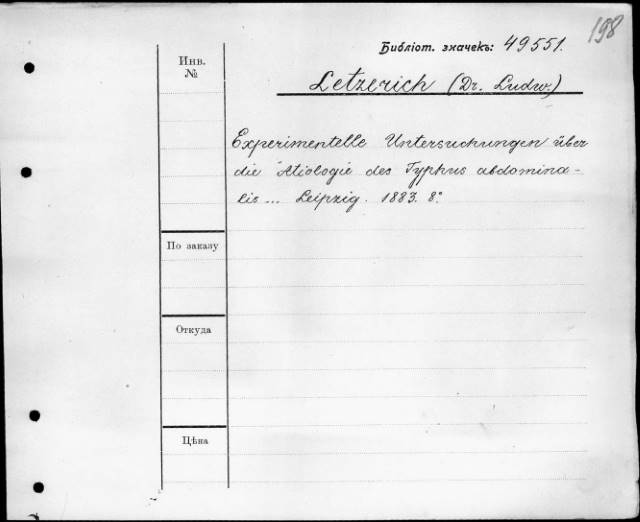 198
Библіот. значекъ: 49551.
Инв.
№
Letzerich (Dr. Ludw.)
Experimentelle Untersuchungen über
die Ätiologie des Typhus abdomina-
lis... Leipzig. 1883. 8°.
По заказу
Откуда
Цѣна